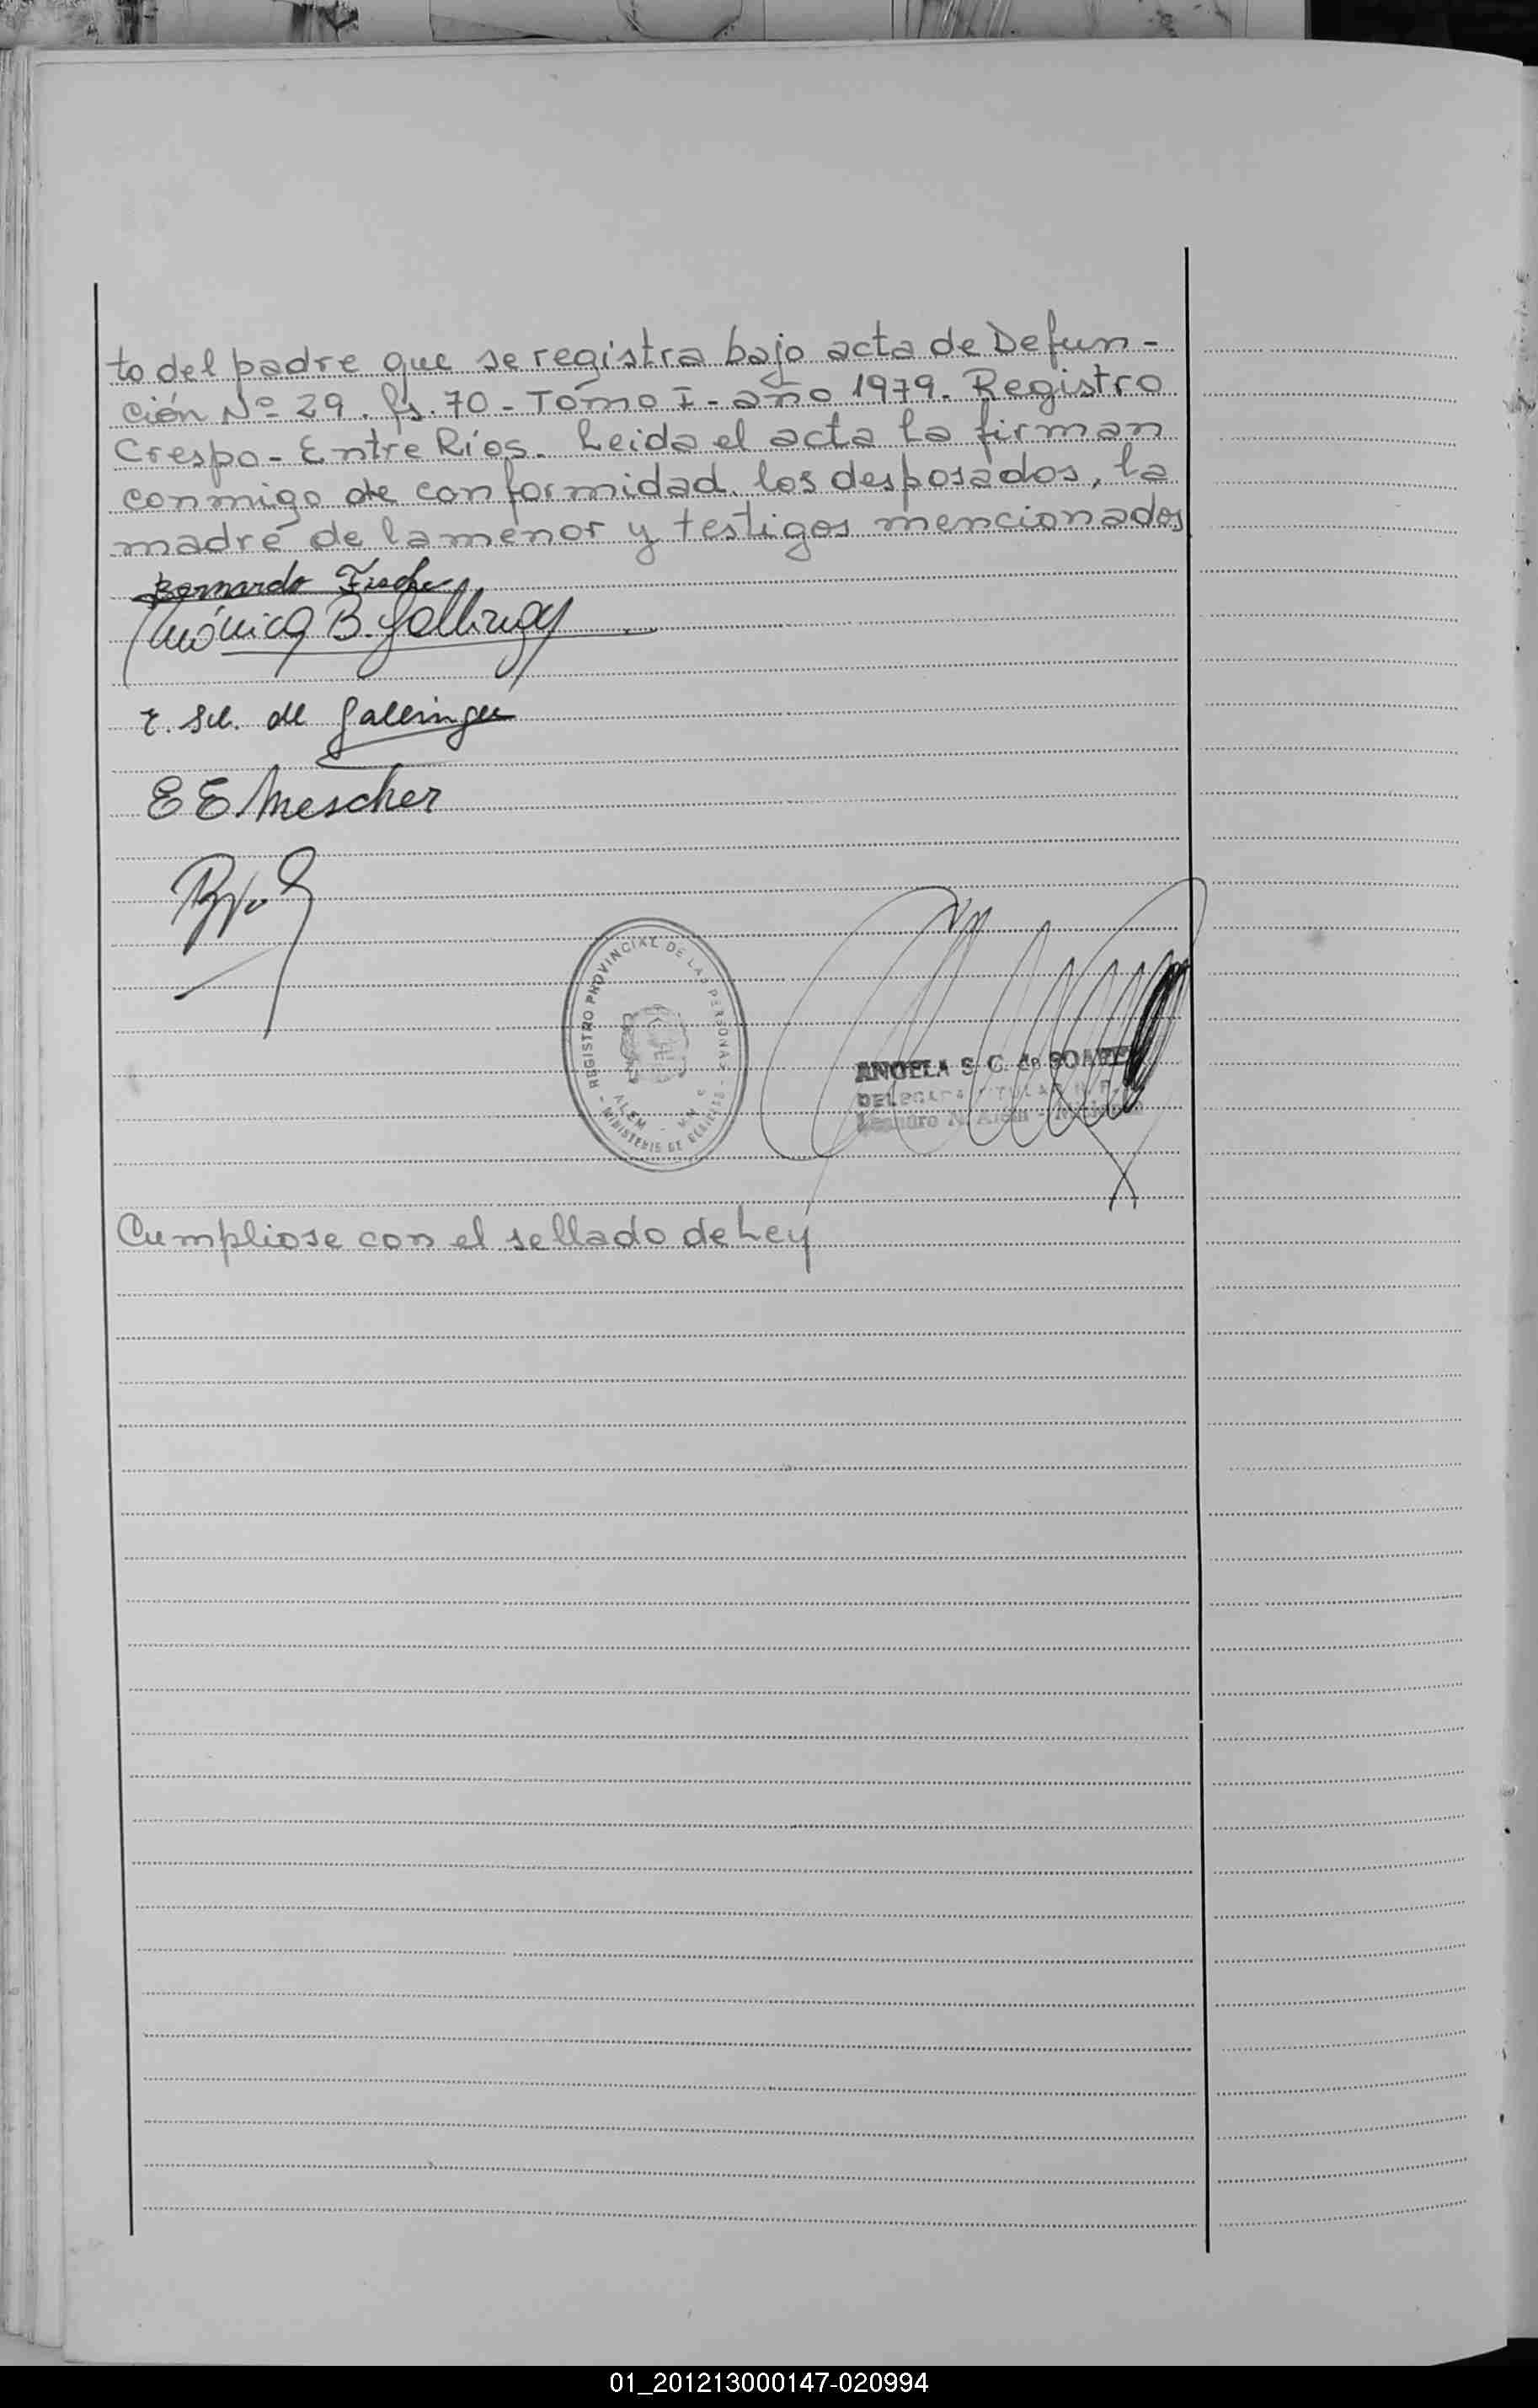 to del padre que se registra bajo acta de Defun-
ción Nº 29. fs. 70 - Tomo I - año 1979. Registro
Crespo - Entre Ríos. Leida el acta la firman
conmigo de conformidad. los desposados, la
madre de la menor y testigos mencionados
Bernardo Fische
Mónica B. Gallinger
E. Sch. de Gallinger
E E Mescher
REGISTRO PROVINCIAL DE LAS PERSONAS
ALEM - MNES
MINISTERIO DE
ANGELA S. C. de
DELEGADA TITULAR R. P.
Leandro N. Alem - Misiones
Cumpliose con el sellado de Ley
01_201213000147-020994